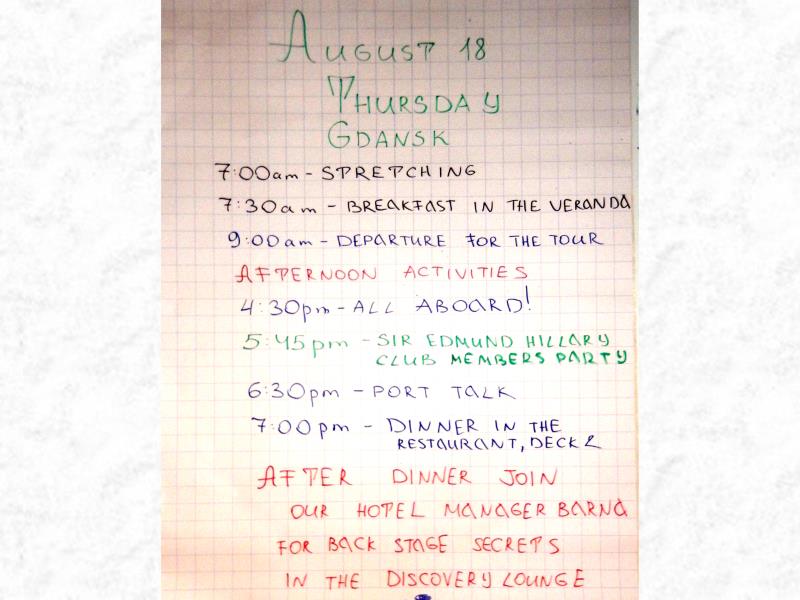 AUGUST 18
THURSDAY
GDANSK
7:00am - STRETCHING
7:30am - BREAKFAST IN THE VERANDA
9:00am - DEPARTURE FOR THE TOUR
AFTERNOON ACTIVITIES
4:30pm - ALL ABOARD!
5:45pm - SIR EDMUND HILLARY
CLUB MEMBERS PARTY
6:30pm - PORT TALK
7:00pm - DINNER IN THE
RESTAURANT, DECK 2
AFTER DINNER JOIN
OUR HOTEL MANAGER BARNA
FOR BACK STAGE SECRETS
IN THE DISCOVERY LOUNGE